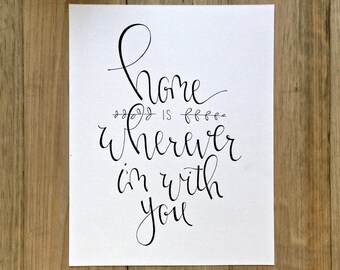 home
IS
wherever
im with
you